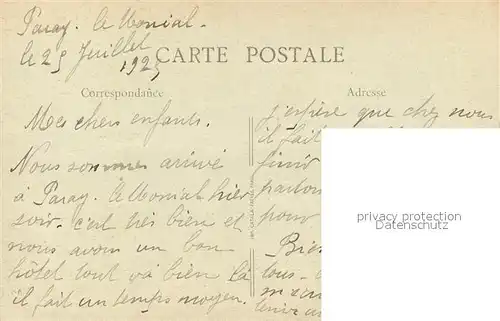 Paray-le-Monial-
le 25 Juillet
1925
CARTE POSTALE
Correspondance
Adresse
Mes chers enfants.
Nous sommes arrivé
à Paray-le-Monial hier
soir. c'est très bien et
nous avon un bon
hôtel tout va bien là
il fait un temps moyen.
j'espère que chez nous
il fait
finir
partons
pour
Bien
tous
privacy protection
Datenschutz